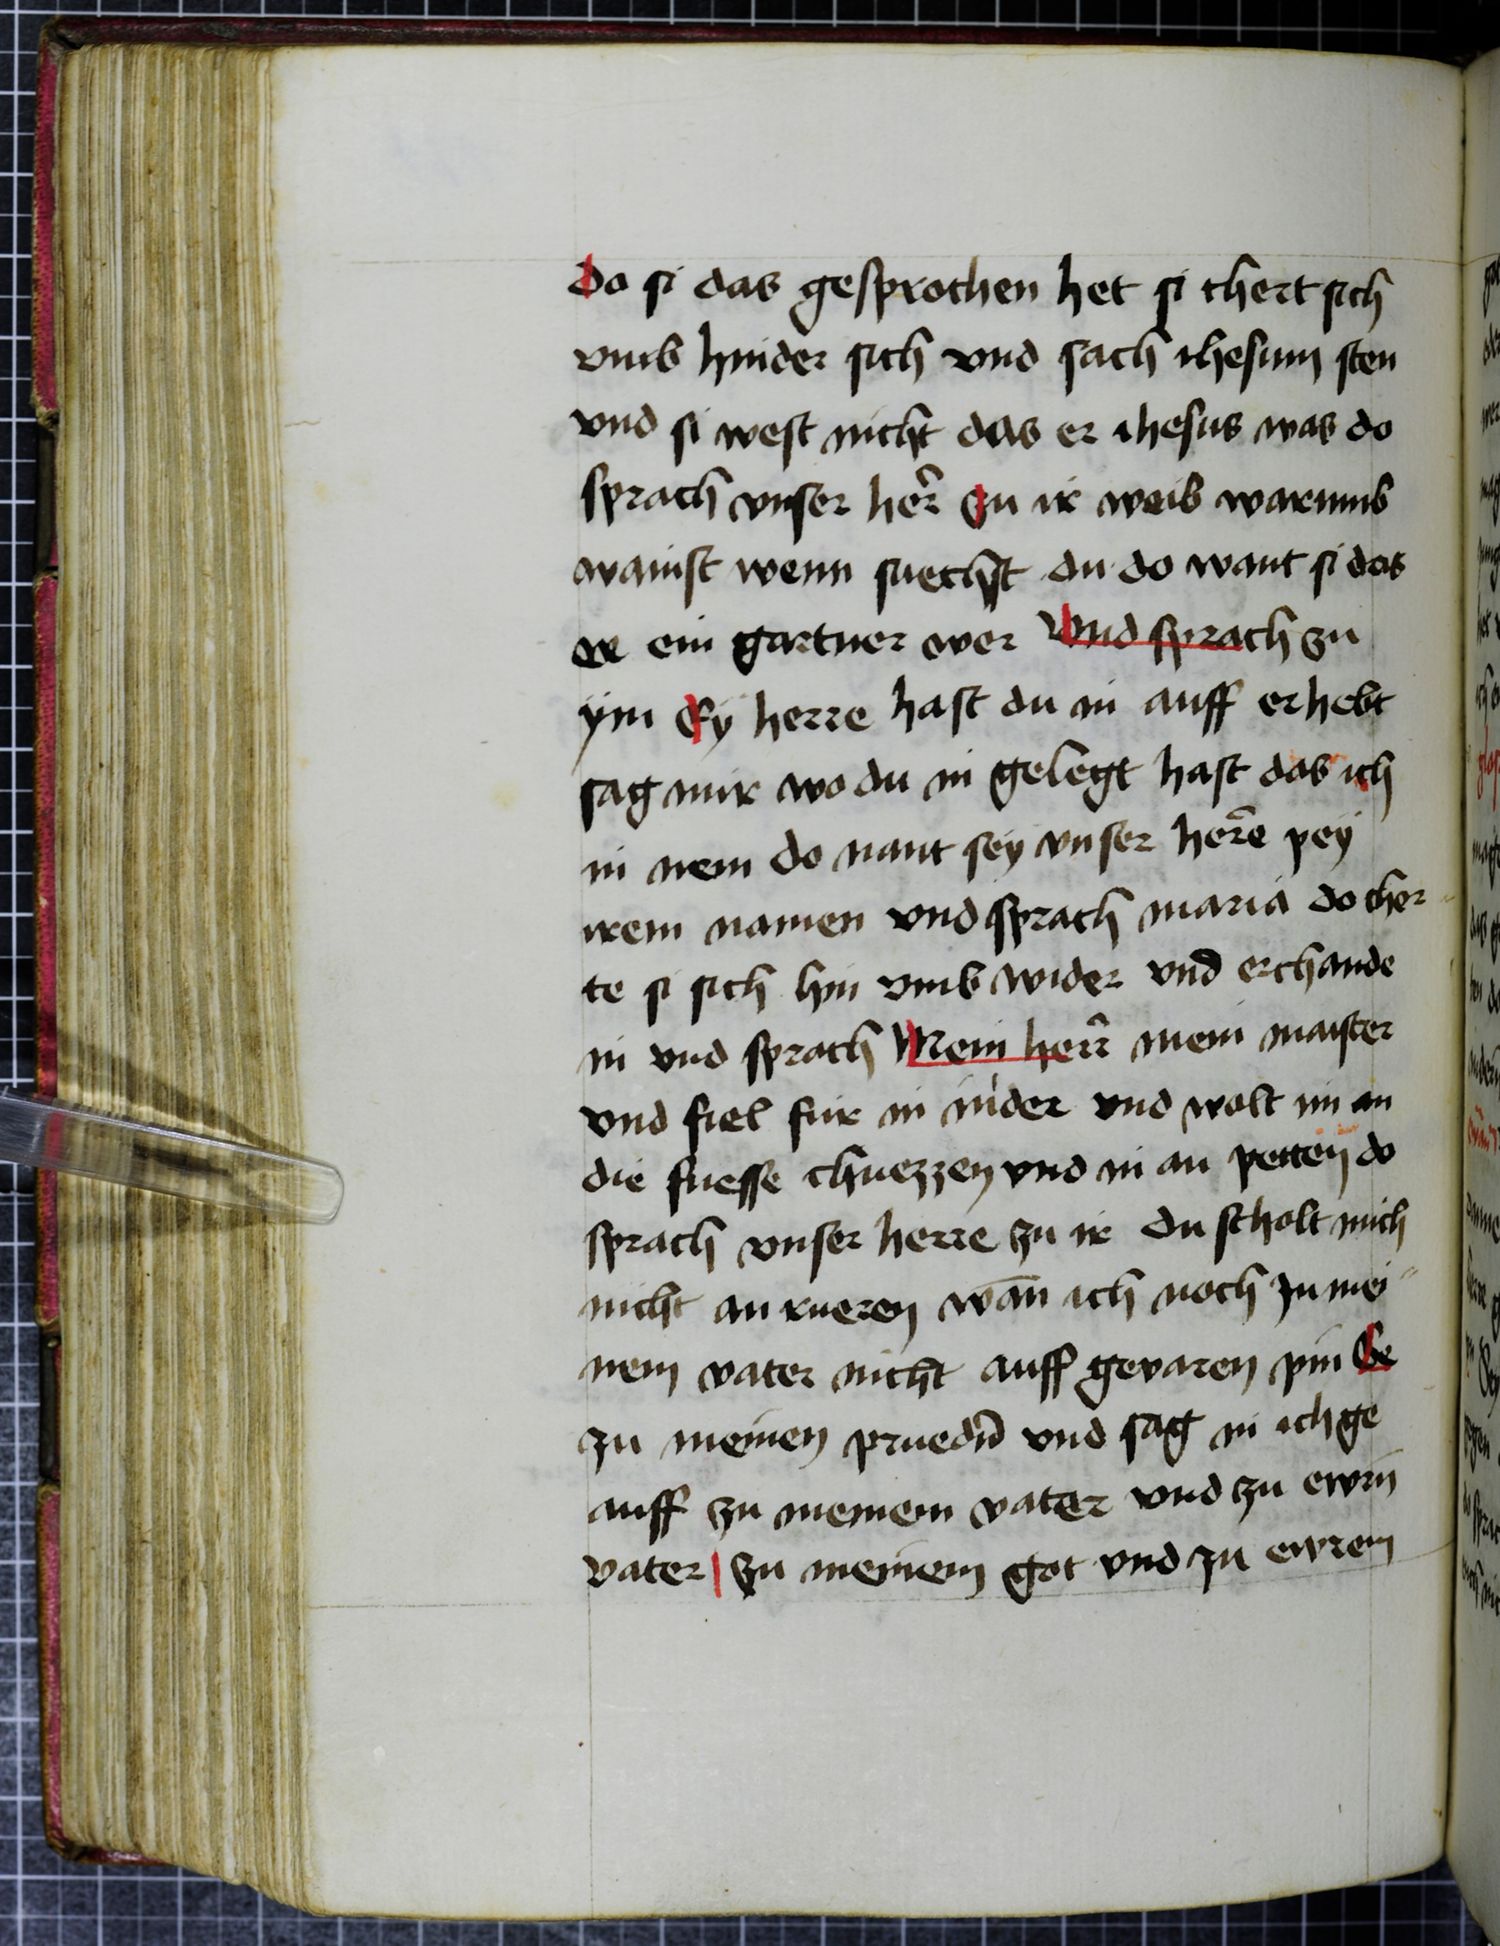 do si das gesprochen het si chert sich
vmb hinder sich vnd sach ihesum sten
vnd si west nicht das er ihesus was do
sprach vnser her̄ zu ir weib warumb
wainst wenn suechst du do want si das
er ein gartner wer Vnd sprach zu
ym Ey herre hast du in auff erhebt
sag mir wo du in gelegt hast das ich
in nem do nant sey vnser her̄e pey
irem namen vnd sprach maria do cher
te si sich hin vmb wider vnd erchande
in vnd sprach Mein herr̄ mein maister
vnd fiel fur in nider vnd wolt im an
die fuesse chuezzen vnd in an petten do
sprach vnser herre zu ir du scholt mich
nicht an rueren wān ich noch zu mei
nem vater nicht auff gevaren pin Ge
zu meinen prued̄n vnd sag in ich ge
auff zu meinem vater vnd zu ewrm
vater | zu meinem got vnd zu ewrem